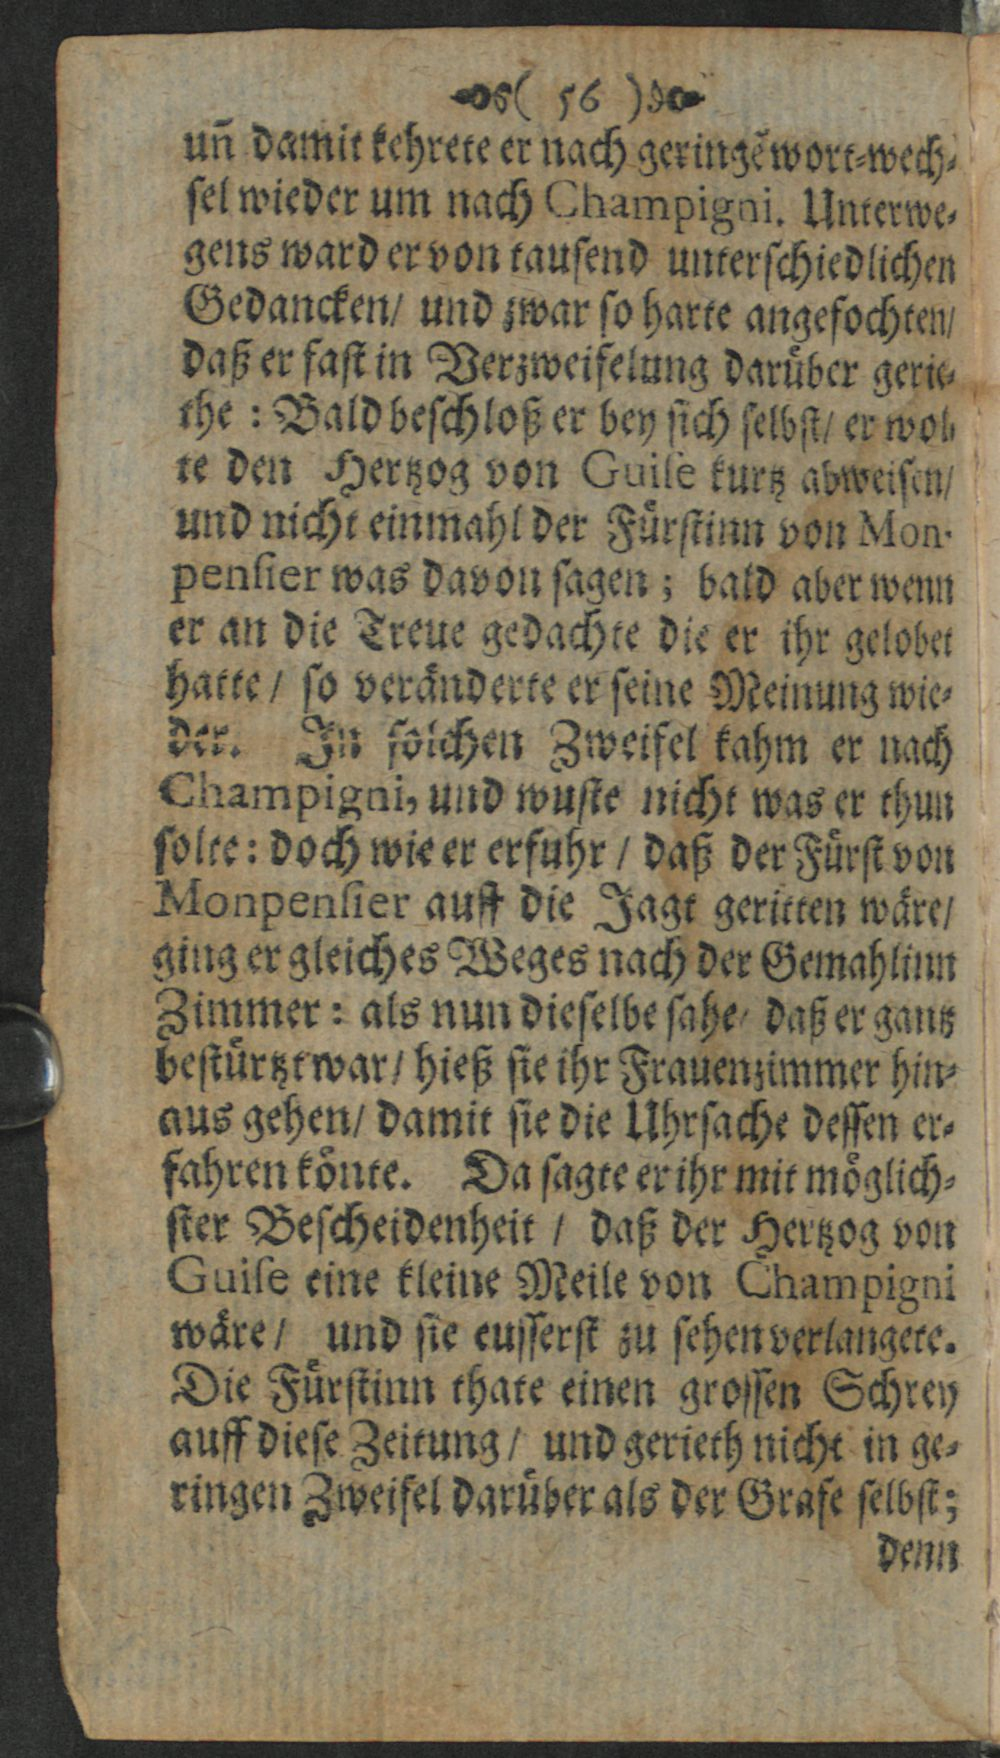 ( 56 )
un̄ damit kehrete er nach geringē wort-wech-
sel wieder um nach Champigni. Unterwe-
gens ward er von tausend unterschiedlichen
Gedancken/ und zwar so harte angefochten/
daß er fast in Verzweifelung darüber gerie-
the : Bald beschloß er bey sich selbst/ er wol-
te den Hertzog von Guise kurtz abweisen/
und nicht einmahl der Fürstinn von Mon-
pensier was davon sagen ; bald aber wenn
er an die Treue gedachte die er ihr gelobet
hatte / so veränderte er seine Meinung wie-
der. In solchen Zweifel kahm er nach
Champigni, und wuste nicht was er thun
solte : doch wie er erfuhr / daß der Fürst von
Monpensier auff die Jagt geritten wäre/
ging er gleiches Weges nach der Gemahlinn
Zimmer : als nun dieselbe sahe/ daß er gantz
bestürtzt war/ hieß sie ihr Frauenzimmer hin-
aus gehen/ damit sie die Uhrsache dessen er-
fahren könte. Da sagte er ihr mit möglich-
ster Bescheidenheit / daß der Hertzog von
Guise eine kleine Meile von Champigni
wäre / und sie eusserst zu sehen verlangete.
Die Fürstinn thate einen grossen Schrey
auff diese Zeitung / und gerieth nicht in ge-
ringen Zweifel darüber als der Grafe selbst;
denn